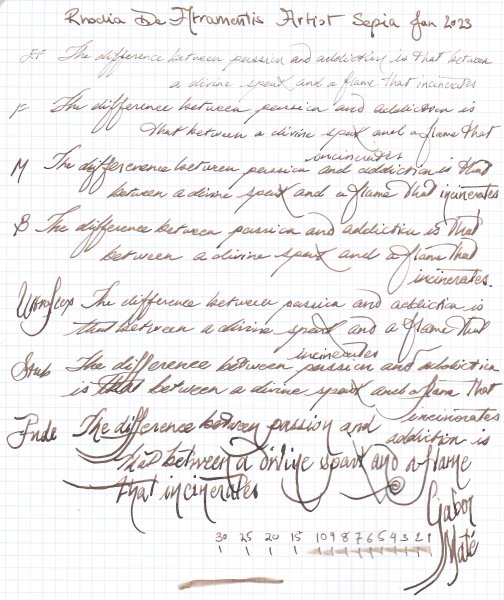 Rhodia De Atramentis Artist Sepia Jan 2023
EF The difference between passion and addiction is that between
a divine spark and a flame that incinerates
F The difference between passion and addiction is
that between a divine spark and a flame that
incinerates
M The difference between passion and addiction is that
between a divine spark and a flame that incinerates
B The difference between passion and addiction is that
between a divine spark and a flame that
incinerates.
The difference between passion and addiction is
that between a divine spark and a flame that
incinerates
Stub The difference between passion and addiction
is that between a divine spark and a flame that
incinerates
Fude The difference between passion and
addiction is
that between a divine spark and a flame
that incinerates
Gabor
Maté
30 25 20 15 10 9 8 7 6 5 4 3 2 1